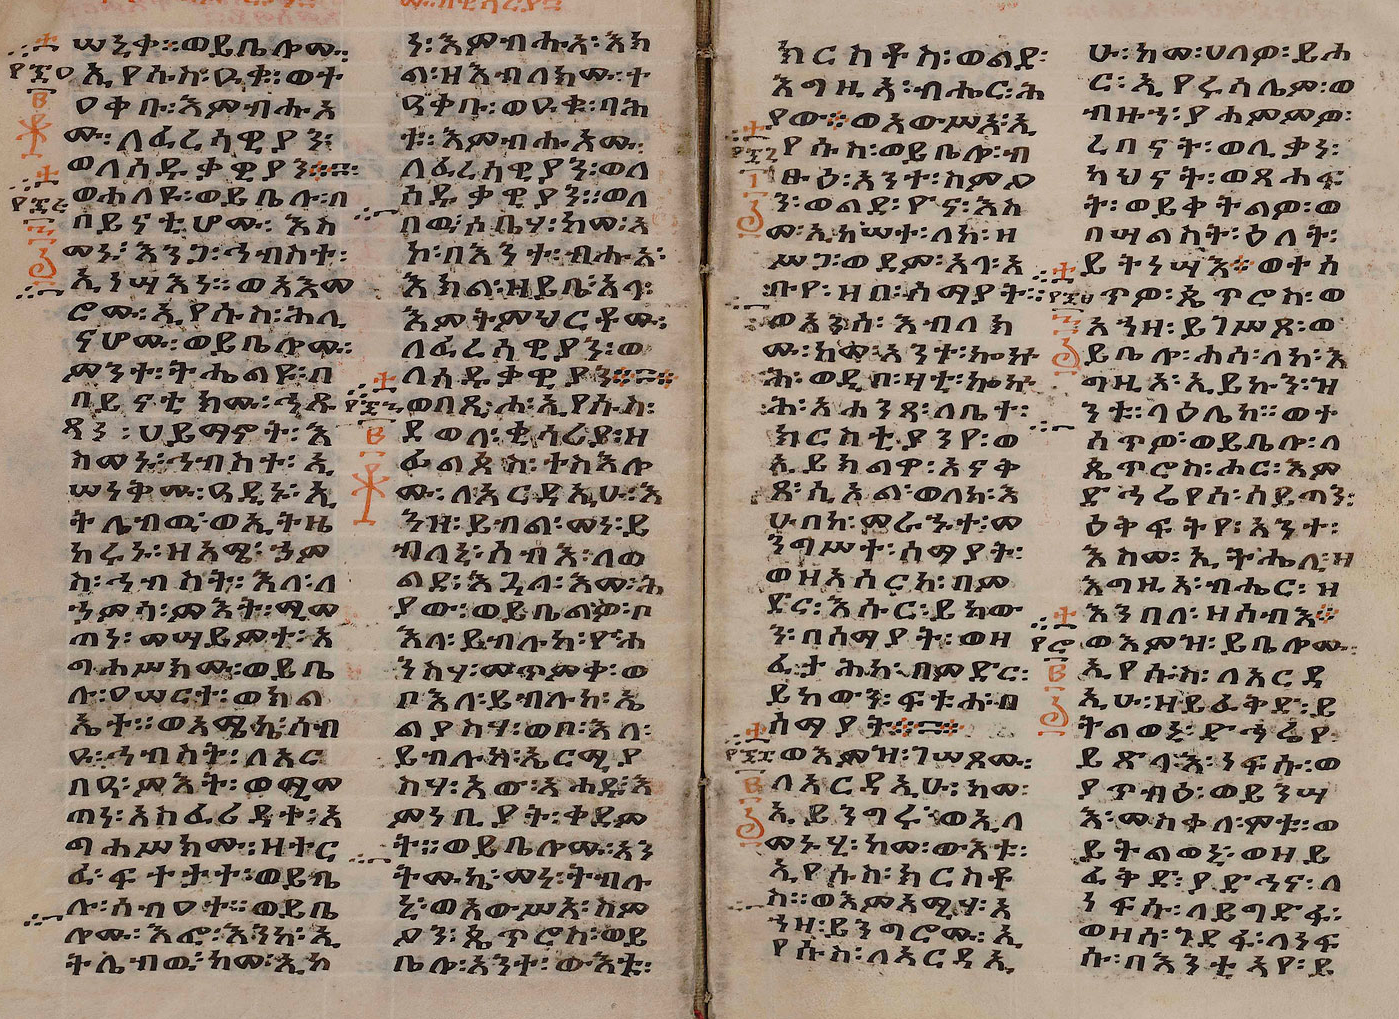 ሠኒቀ፡፡ወይቤሎሙ፡
ኢየሱስ፡ዑቁ፡ወተ
ዐቀቡ፡እምብሑአ
ሙ፡ለፈሪሳዊያን፡
ወለሰዱቃዊያን፨
ወሐለዩ፡ወይቤሉ፡በ
በይናቲሆሙ፡እስ
መኑ፡እንጋ፡ኅብስተ፡
ኢነሣእነ፡፡ወአእመ
ሮሙ፡ኢየሱስ፡ሕሊ
ናሆሙ፡ወይቤሎሙ፡
ምንተ፡ትሔልዩ፡በ
በይናቲክሙ፡ኅጹ
ጻን፡ሀይማኖት፡እ
ስመኑ፡ኅብስተ፡ኢ
ሠነቅሙ፡ዓዲኑ፡ኢ
ትሌብዉ፡ወኢትዜ
ከሩኑ፡ዘአሜ፡ኀም
ስ፡ኅብስት፡እለ፡ለ
ኀምሳ፡ምእት፡ሚመ
ጠነ፡መሣይምተ፡አ
ግሐሥክሙ፡ወይቤ
ሉ፡ዐሠርተ፡ወክል
ኤተ፡፡ወአሜኒ፡ሰብ
ዑ፡ኅብስት፡ለአር
በዓ፡ምእት፡ወሚመ
ጠነ፡አስፈሪዳተ፡አ
ግሐሥክሙ፡፡ዘተር
ፈ፡ፍተታተ፡ወይቤ
ሉ፡ሰብዐተ፡፡ወይቤ
ሎሙ፡እፎ፡እንከ፡ኢ
ትሌብዉ፡ከመ፡ኢኮ
ነ፡እምብሑአ፡እክ
ል፡ዘእብለክሙ፡ተ
ዓቀቡ፡ወዑቁ፡ባሕ
ቱ፡፡እምብሑአሙ፡
ለፈሪሳዊያን፡ወለ
ሰዱቃዊያን፡፡ወለ
በዉ፡ሶቤሃ፡ከመ፡አ
ኮ፡በእንተ፡ብሑአ፡
እክል፡ዘይቤ፡አላ፡
እምትምህርቶሙ፡
ለፈሪሳዊያን፡ወ
ለሰዱቃዊያን፨
ወበጺሖ፡ኢየሱስ፡
ደወለ፡ቂሳሪያ፡ዘ
ፊልጶስ፡ተስእሎ
ሙ፡ለአርዳኢሁ፡እ
ንዘ፡ይብል፡መኑ፡ይ
ብለኒ፡ሰብእ፡ለወ
ልደ፡እጓለ፡እመ፡ሕ
ያው፡ወይቤልዎ፡ቦ
እለ፡ይብሉከ፡ዮሐ
ንስሃ፡መጥምቀ፡ወ
ቦእለ፡ይብሉከ፡ኤ
ልያስሃ፡ወቦ፡እለ፡
ይብሉከ፡ኤርምያ
ስሃ፡አው፡አሐዱ፡እ
ምነቢያት፡ቀደም
ት፡፡ወይቤሎሙ፡አን
ትሙኬ፡መኑ፡ትብሉ
ኒ፡ወአውሥአ፡ስም
ዖን፡ጴጥሮስ፡ወይ
ቤሎ፡አንተ፡ውእቱ፡
ክርስቶስ፡ወልደ፡
እግዚአ፡ብሔር፡ሕ
ያው፨ወአውሥአ፡ኢ
የሱስ፡ወይቤሎ፡ብ
ፁዕ፡አንተ፡ስምዖ
ን፡ወልደ፡ዮና፡እስ
መ፡ኢከሠተ፡ለከ፡ዘ
ሥጋ፡ወደም፡አላ፡አ
ቡየ፡ዘበ፡ሰማያት፡፡
ወአንሰ፡እብለክ
ሙ፡ከመ፡አንተ፡ኰኵ
ሕ፡ወዲበ፡ዛቲ፡ኰኵ
ሕ፡አሐንጻ፡ለቤተ፡
ክርስቲያንየ፡ወ
ኢይክልዋ፡አናቅ
ጸ፡ሲኦል፡ወለከ፡እ
ሁበከ፡መራኁተ፡መ
ንግሥተ፡ሰማያት፡
ወዘአሰርከ፡በም
ድር፡እሱር፡ይከው
ን፡በሰማያት፡ወዘ
ፈታሕከ፡በምድር፡
ይከውን፡ፍቱሐ፡በ
ሰማያት፨
ወእምዝ፡ገሠጾሙ፡
ለአርዳኢሁ፡ከመ፡
ኢይንግሩ፡ወኢለ
መኑሂ፡ከመ፡ውእቱ፡
ኢየሱስ፡ክርስቶ
ስ፡፡ወእምአሜሃ፡አ
ኀዘ፡ይንግሮሙ፡ኢ
የሱስ፡ለአርዳኢ
ሁ፡ከመ፡ሀለዎ፡ይሖ
ር፡ኢየሩሳሌም፡ወ
ብዙኀ፡ያሐምምዎ፡
ረበናት፡ወሊቃነ፡
ካህናት፡ወጸሐፍ
ት፡ወይቀትልዎ፡ወ
በሣልስት፡ዕለት፡
ይትነሣእ፨ወተሰ
ጥዎ፡ጴጥሮስ፡ወ
አኀዘ፡ይገሥጾ፡ወ
ይቤሎ፡ሐሰ፡ለከ፡እ
ግዚእ፡ኢይኩን፡ዝ
ንቱ፡ላዕሌከ፡፡ወተ
ሰጥዎ፡ወይቤሎ፡ለ
ጴጥሮስ፡ሑር፡እም
ድኅሬየ፡ሰይጣን፡
ዕቅፍትየ፡አንተ፡
እስመ፡ኢትሔሊ፡ዘ
እግዚአ፡ብሔር፡ዘ
እንበለ፡ዘሰብእ፨
ወእምዝ፡ይቤሎሙ፡
ኢየሱስ፡ለአርዳ
ኢሁ፡ዘይፈቅድ፡ይ
ትልወኒ፡ድኅሬየ፡
ይጽላእ፡ነፍሶ፡ወ
ያጥብዕ፡ወይንሣ
እ፡መስቀለ፡ሞቱ፡ወ
ይትልወኒ፡ወዘይ
ፈቅድ፡ያድኅና፡ለ
ነፍሱ፡ለይግድፋ፡
ወዘሰ፡ገደፋ፡ለነፍ
ሱ፡በእንቲአየ፡ይ